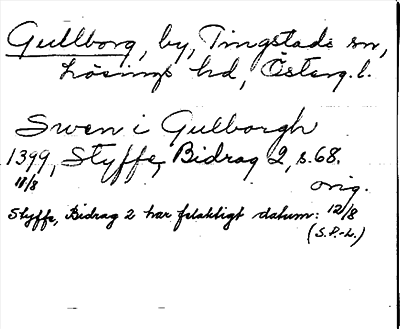 Gullborg, by, Tingstads sn,
Lösings hd, Österg. l.
Swen i Gulborgh
1399, Styffe, Bidrag 2, s. 68.
11/8 orig.
Styffe, Bidrag 2 har felaktigt datum: 12/8
(S.P.-L.)